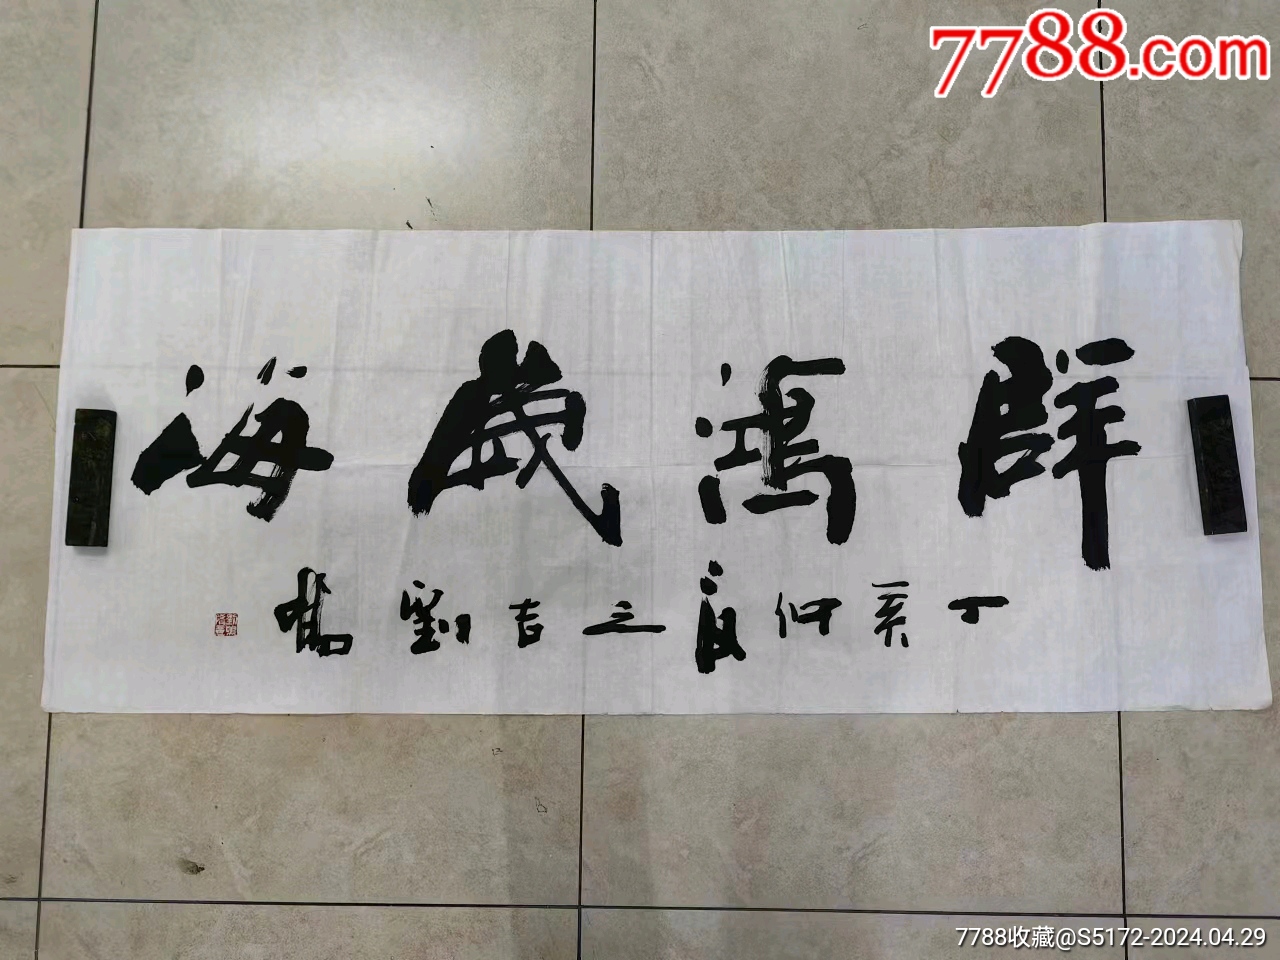 7788.com
群鴻戲海
丁亥仲夏之吉劉
7788收藏@S5172-2024.04.29